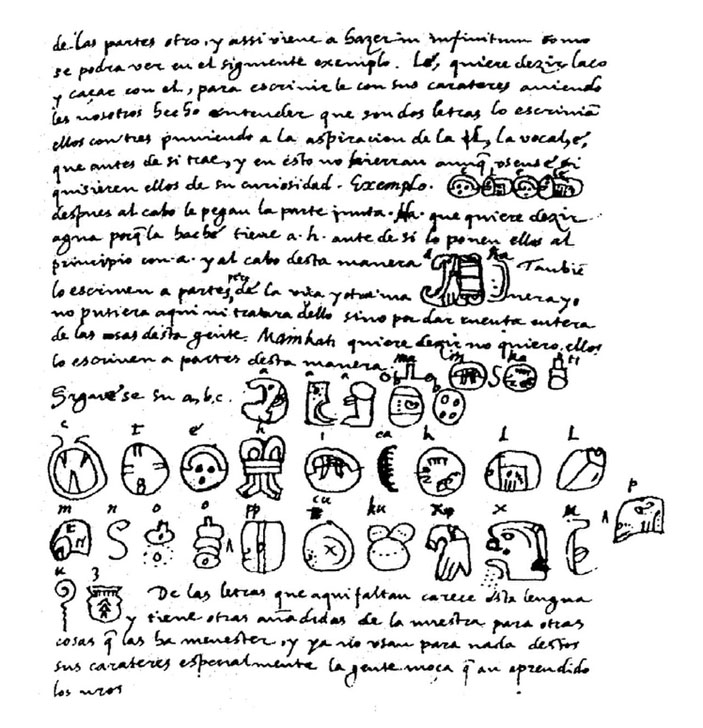 de las partes otro, y assi viene a hazer in infinitum como
se podra ver en el siguiente exemplo. Le, quiere dezir laço
y caçar con el, para escrivirle con sus carateres aviendo
les nosotros hecho entender que son dos letras lo escrivian
ellos con tres puniendo a la aspiracion de la l, la vocal, e,
que antes de si trae, y en esto no hierran aunq̃ usense si
quisieren ellos de su curiosidad. Exemplo. e l e le
despues al cabo le pegan la parte junta. Ha. que quiere dezir
agua porq̃ la hache tiene a. h. ante de si lo ponen ellos al
principio con a. y al cabo desta manera a ha Tambiē
lo escriven a partes, pero de la una y otra ma nera yo
no pusiera aqui ni tratara dello sino por dar cuenta entera
de las cosas desta gente. Mainkati quiere dezir no quiero, ellos
lo escriven a partes desta manera. ma in ka ti
Siguese su a, b, c. a a a b b
c t e h i ca k l l
m n o o pp cu ku x x u p
u z De las letras que aqui faltan carece esta lengua
y tiene otras añadidas de la nuestra para otras
cosas q̃ las ha menester, y ya no usan para nada destos
sus carateres especialmente la gente moça q̃ an aprendido
los nros